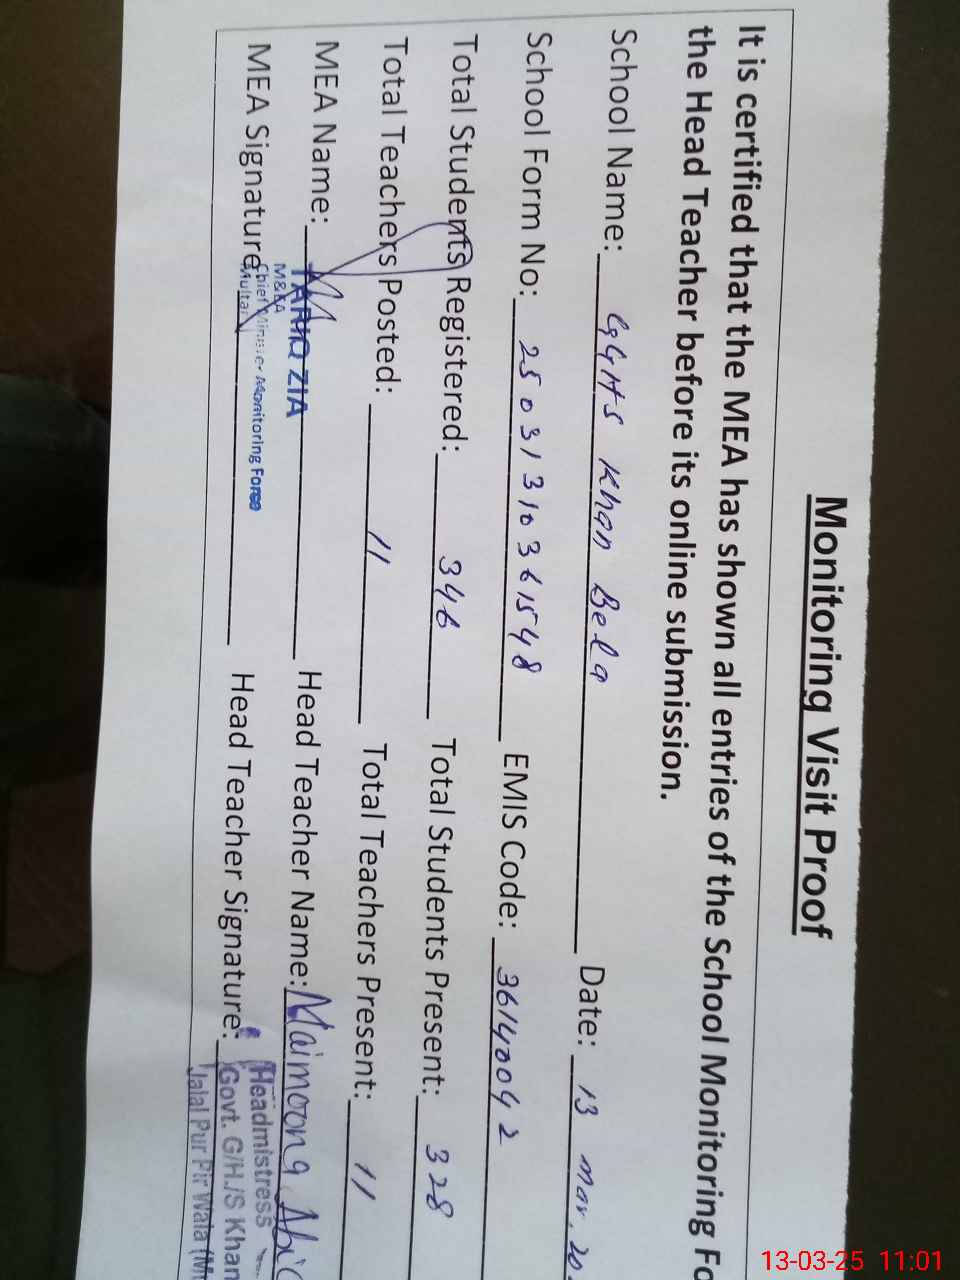 Monitoring Visit Proof
It is certified that the MEA has shown all entries of the School Monitoring Fo
the Head Teacher before its online submission.
School Name: GGHS Khan Bela Date: 13 Mar, 20
School Form No: EMIS Code: 36140042
Total Students Registered: 346 Total Students Present: 328
Total Teachers Posted: 11 Total Teachers Present: 11
MEA Name: TARIQ ZIA Head Teacher Name: Maimoona Abi
M&EA
Chief Minister Monitoring Force
Multan
MEA Signature Head Teacher Signature:
Headmistress
Govt. G/H./S Khan
Jalal Pur Pir Wala (M
13-03-25 11:01